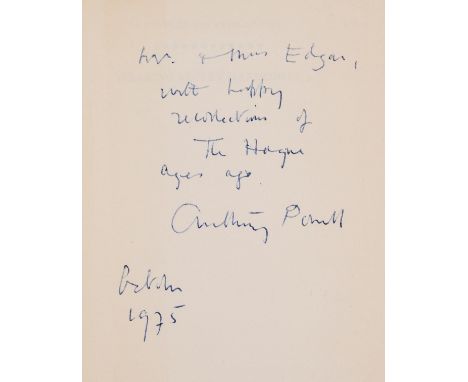 Mr. & Mrs Edgar,
with happy
recollections of
The Hague
ages ago.
Anthony Powell
October
1975